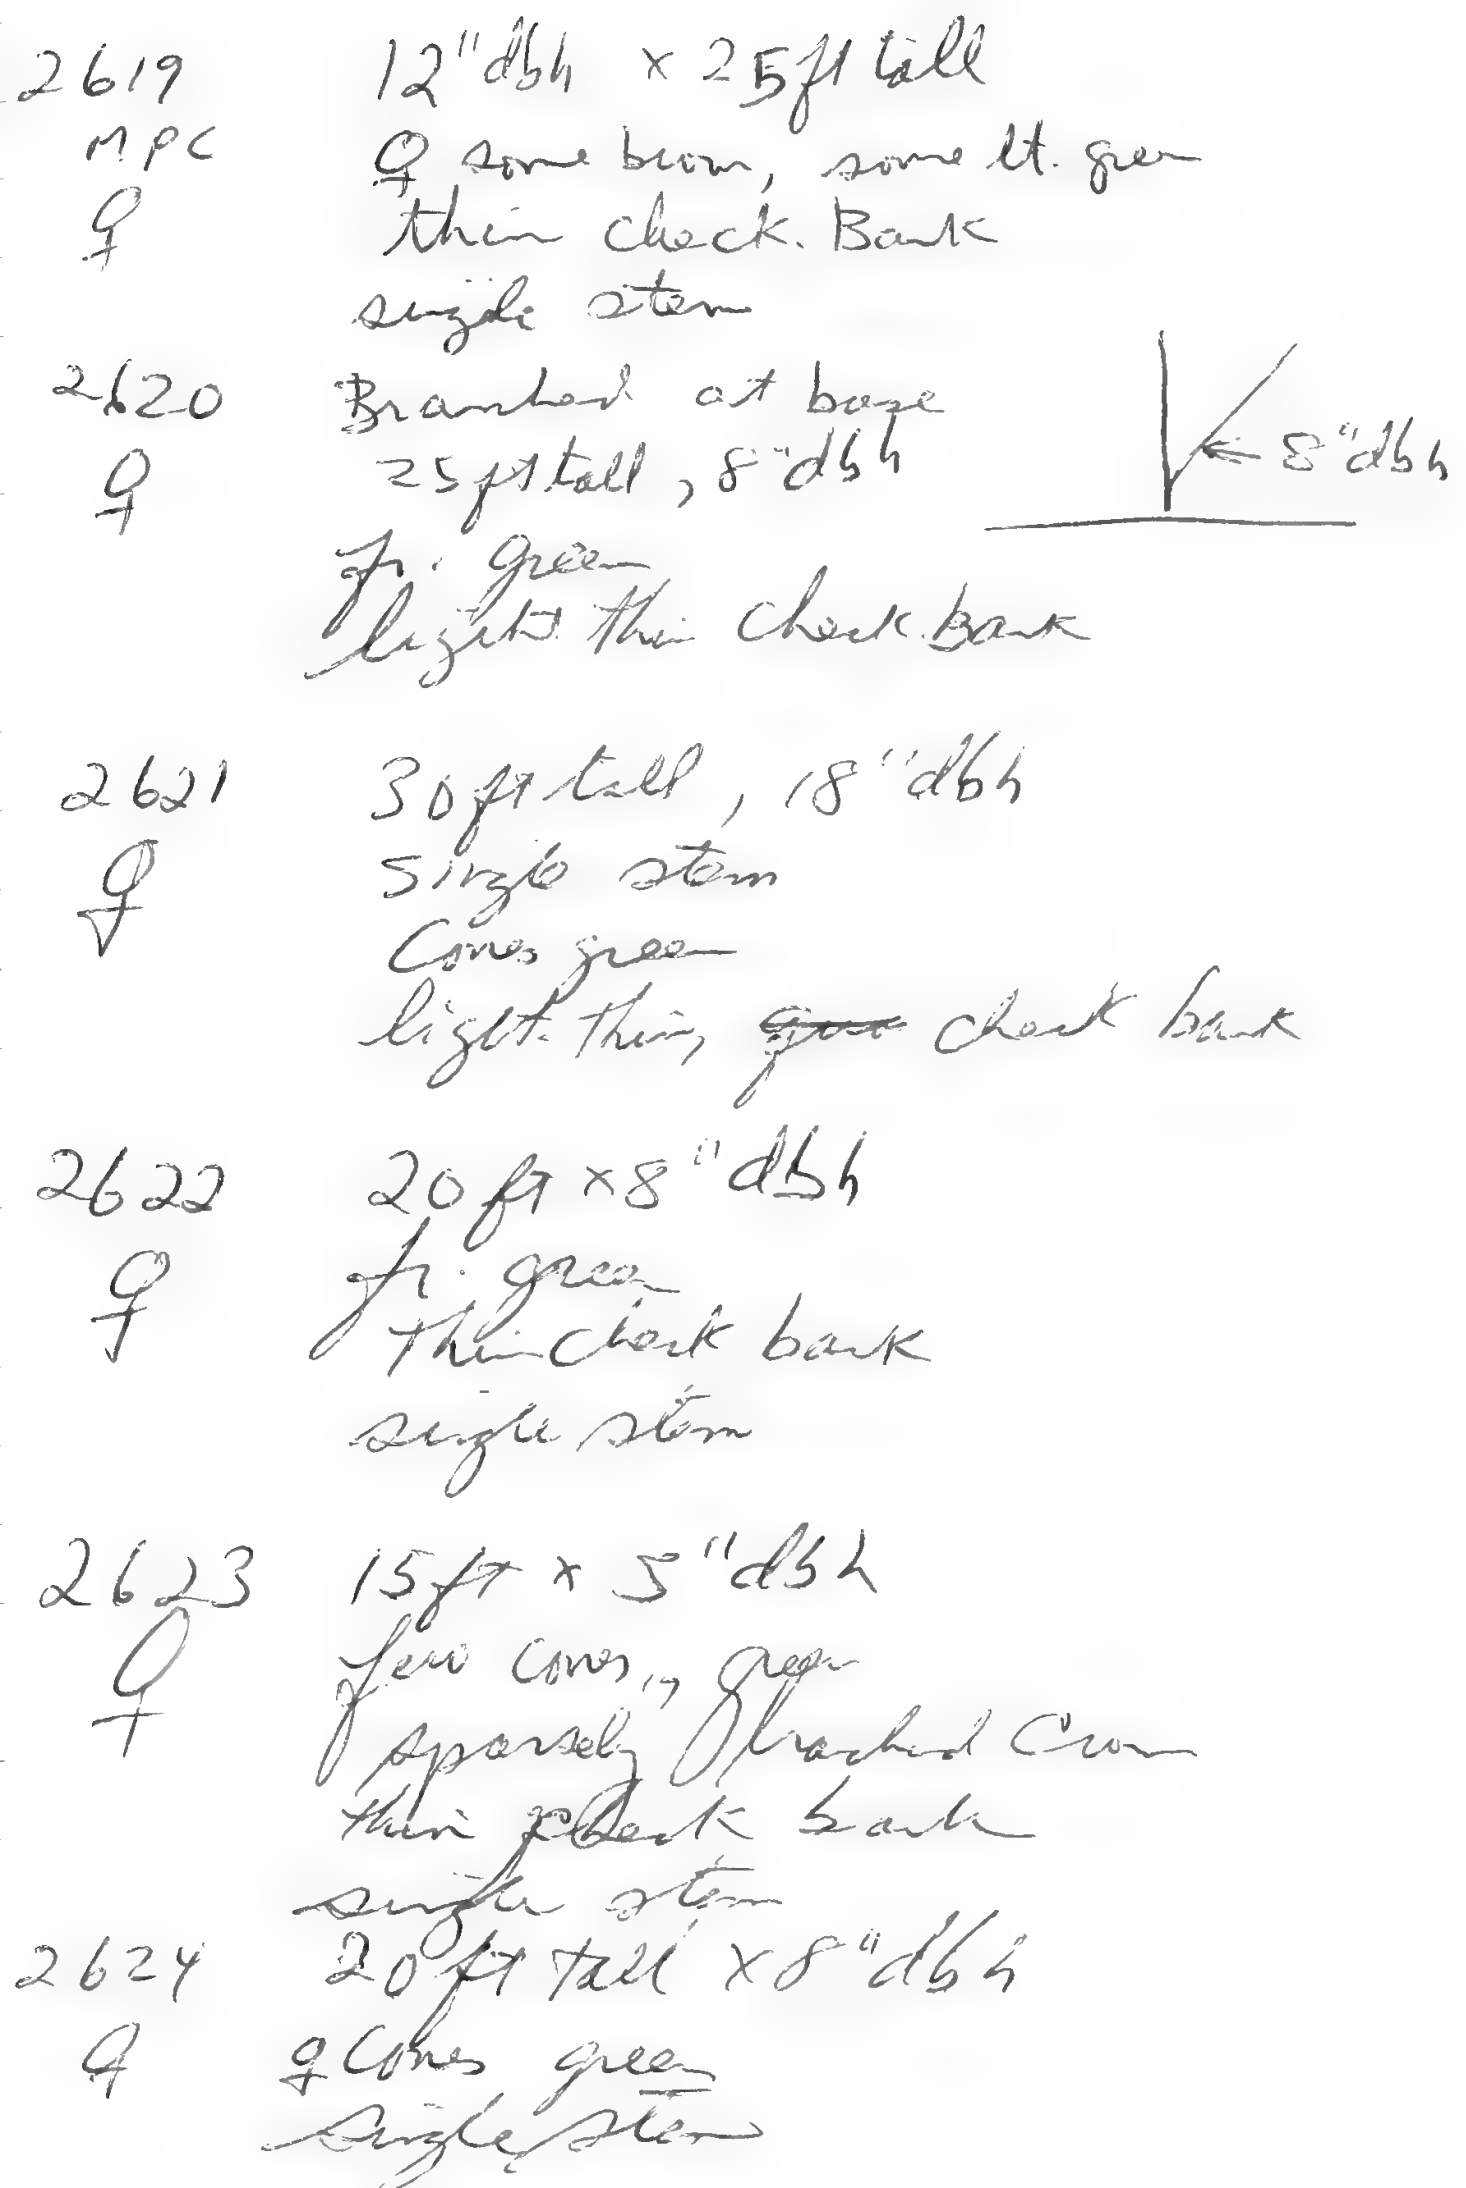 2619 12" dbh x 25 ft tall
MPC ♀ some brown, some lt. green
♀ thin check. Bark
single stem
2620 Branched at base
♀ 25 ft tall, 8" dbh ← 8" dbh
fr. green
light thin check. Bark
2621 30 ft tall, 18" dbh
♀ single stem
Cones green
light thin, check bark
2622 20 ft x 8" dbh
♀ fr. green
thin check bark
single stem
2623 15 ft x 5" dbh
♀ few cones, green
sparsely branched Crown
thin check bark
single stem
2624 20 ft tall x 8" dbh
♀ ♀ Cones green
single stem